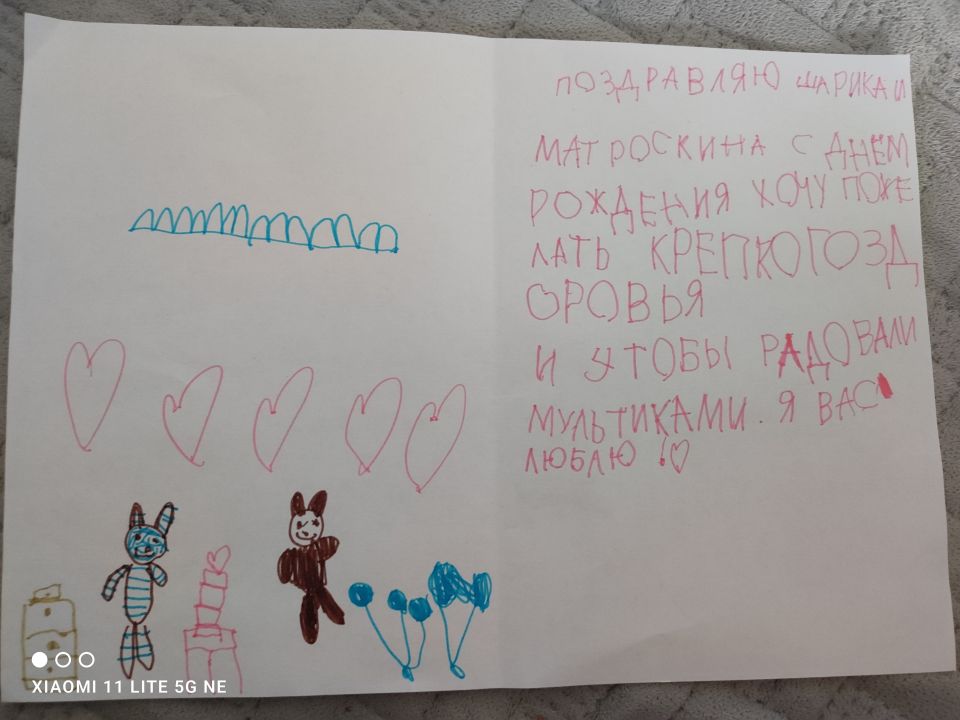 ПОЗДРАВЛЯЮ ШАРИКА И
МАТРОСКИНА С ДНЁМ
РОЖДЕНИЯ ХОЧУ ПОЖЕ
ЛАТЬ КРЕПКОГОЗД
ОРОВЬЯ
И ЧТОБЫ РАДОВАЛИ
МУЛЬТИКАМИ. Я ВАС
ЛЮБЛЮ!♡
XIAOMI 11 LITE 5G NE